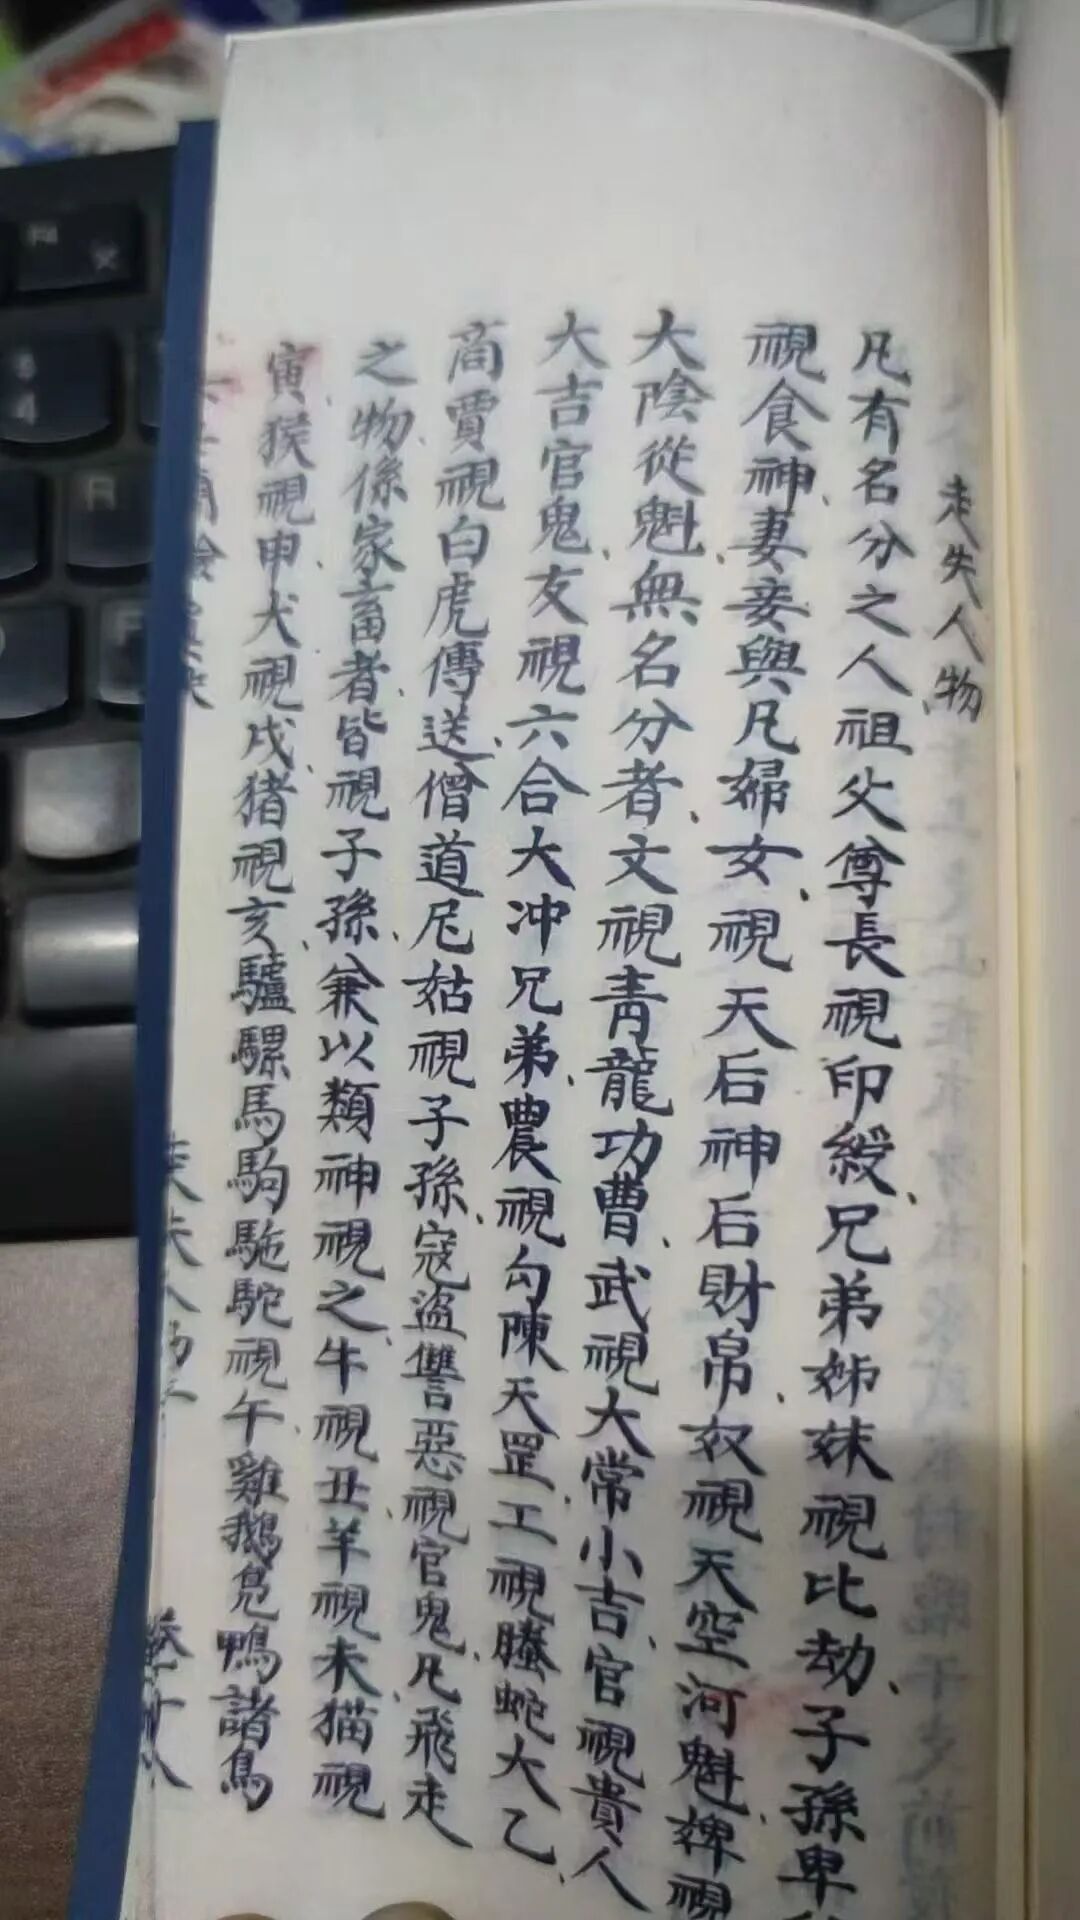 走失人物
凡有名分之人祖父尊長視印綬、兄弟姊妹視比劫、子孫卑
視食神、妻妾與凡婦女、視天后神后財帛、奴視天空河魁、婢視
大陰從魁、無名分者、文視青龍功曹、武視大常小吉、官視貴人、
大吉官鬼、友視六合大冲兄弟、農視勾陳天罡、工視螣蛇大乙、
商賈視白虎傳送、僧道尼姑視子孫、寇盜讐惡視官鬼、凡飛走
之物、係家畜者、皆視子孫、兼以類神視之、牛視丑羊視未、猫視
寅、猴視申、犬視戌、猪視亥、驢騾馬駒駞駝視午、雞鵝鳧鴨諸鳥